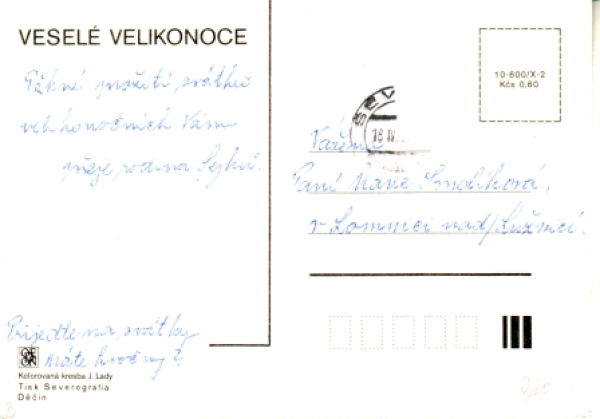 VESELÉ VELIKONOCE
Pěkné prožití svátků
velikonočních Vám
přeje rodina
10-600/X-2
Kčs 0,60
SEV
18 IV
Vážená
Paní Marie Smolíková,
v Lomnici nad/Lužnicí.
Přijeďte na svátky
máte hročny?
Kolorovaná kresba J. Lady
Tisk Severografia
Děčín